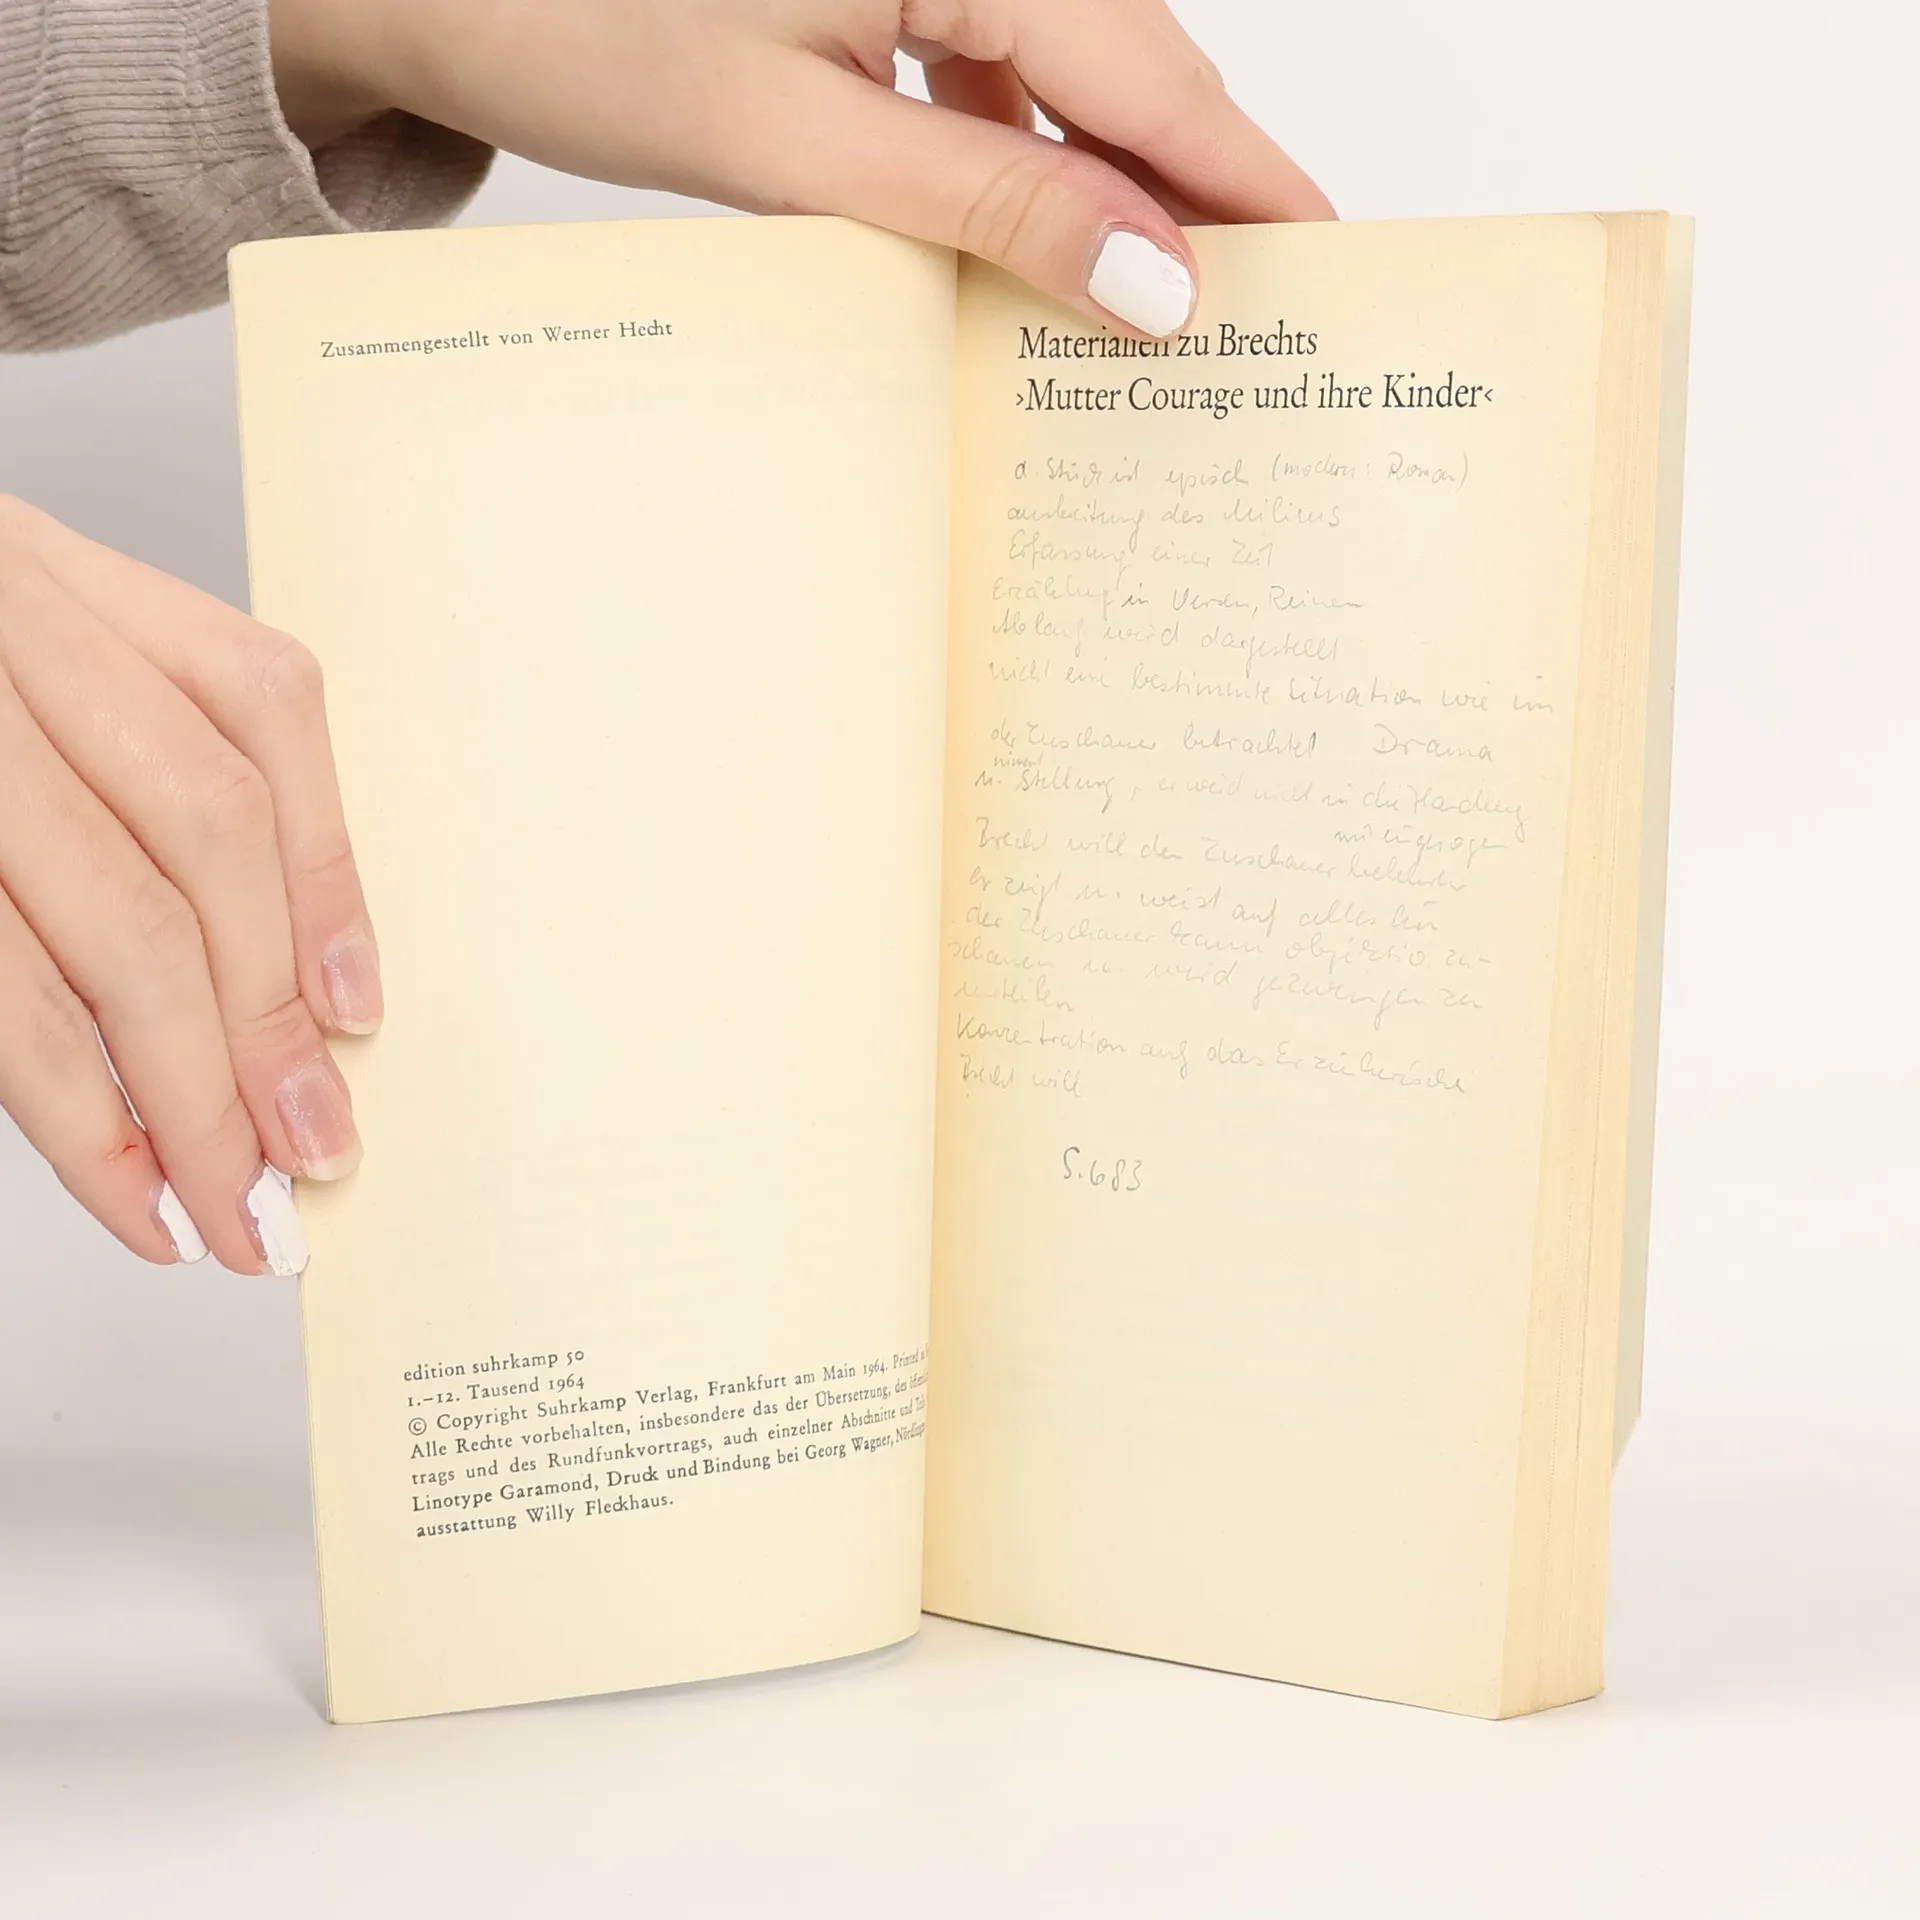 Zusammengestellt von Werner Hecht
edition suhrkamp 50
1.–12. Tausend 1964
© Copyright Suhrkamp Verlag, Frankfurt am Main 1964. Printed
Alle Rechte vorbehalten, insbesondere das der Übersetzung, des
trags und des Rundfunkvortrags, auch einzelner Abschnitte und
Linotype Garamond, Druck und Bindung bei Georg Wagner,
ausstattung Willy Fleckhaus.
Materialien zu Brechts
›Mutter Courage und ihre Kinder‹
d. Stück ist episch (modern: Roman)
des Milieus
Erfassung einer Zeit
Erzählung in Versen, Reimen
Ablauf wird dargestellt
nicht eine bestimmte Situation wie im
der Zuschauer betrachtet Drama
nimmt
u. Stellung, er wird nicht in die Handlung
Brecht will den Zuschauer
er zeigt u. weist auf alles hin
der Zuschauer kann objektiv zu-
schauen u. wird gezwungen zu
urteilen
Konzentration auf das Erzieherische
Brecht will
S. 683